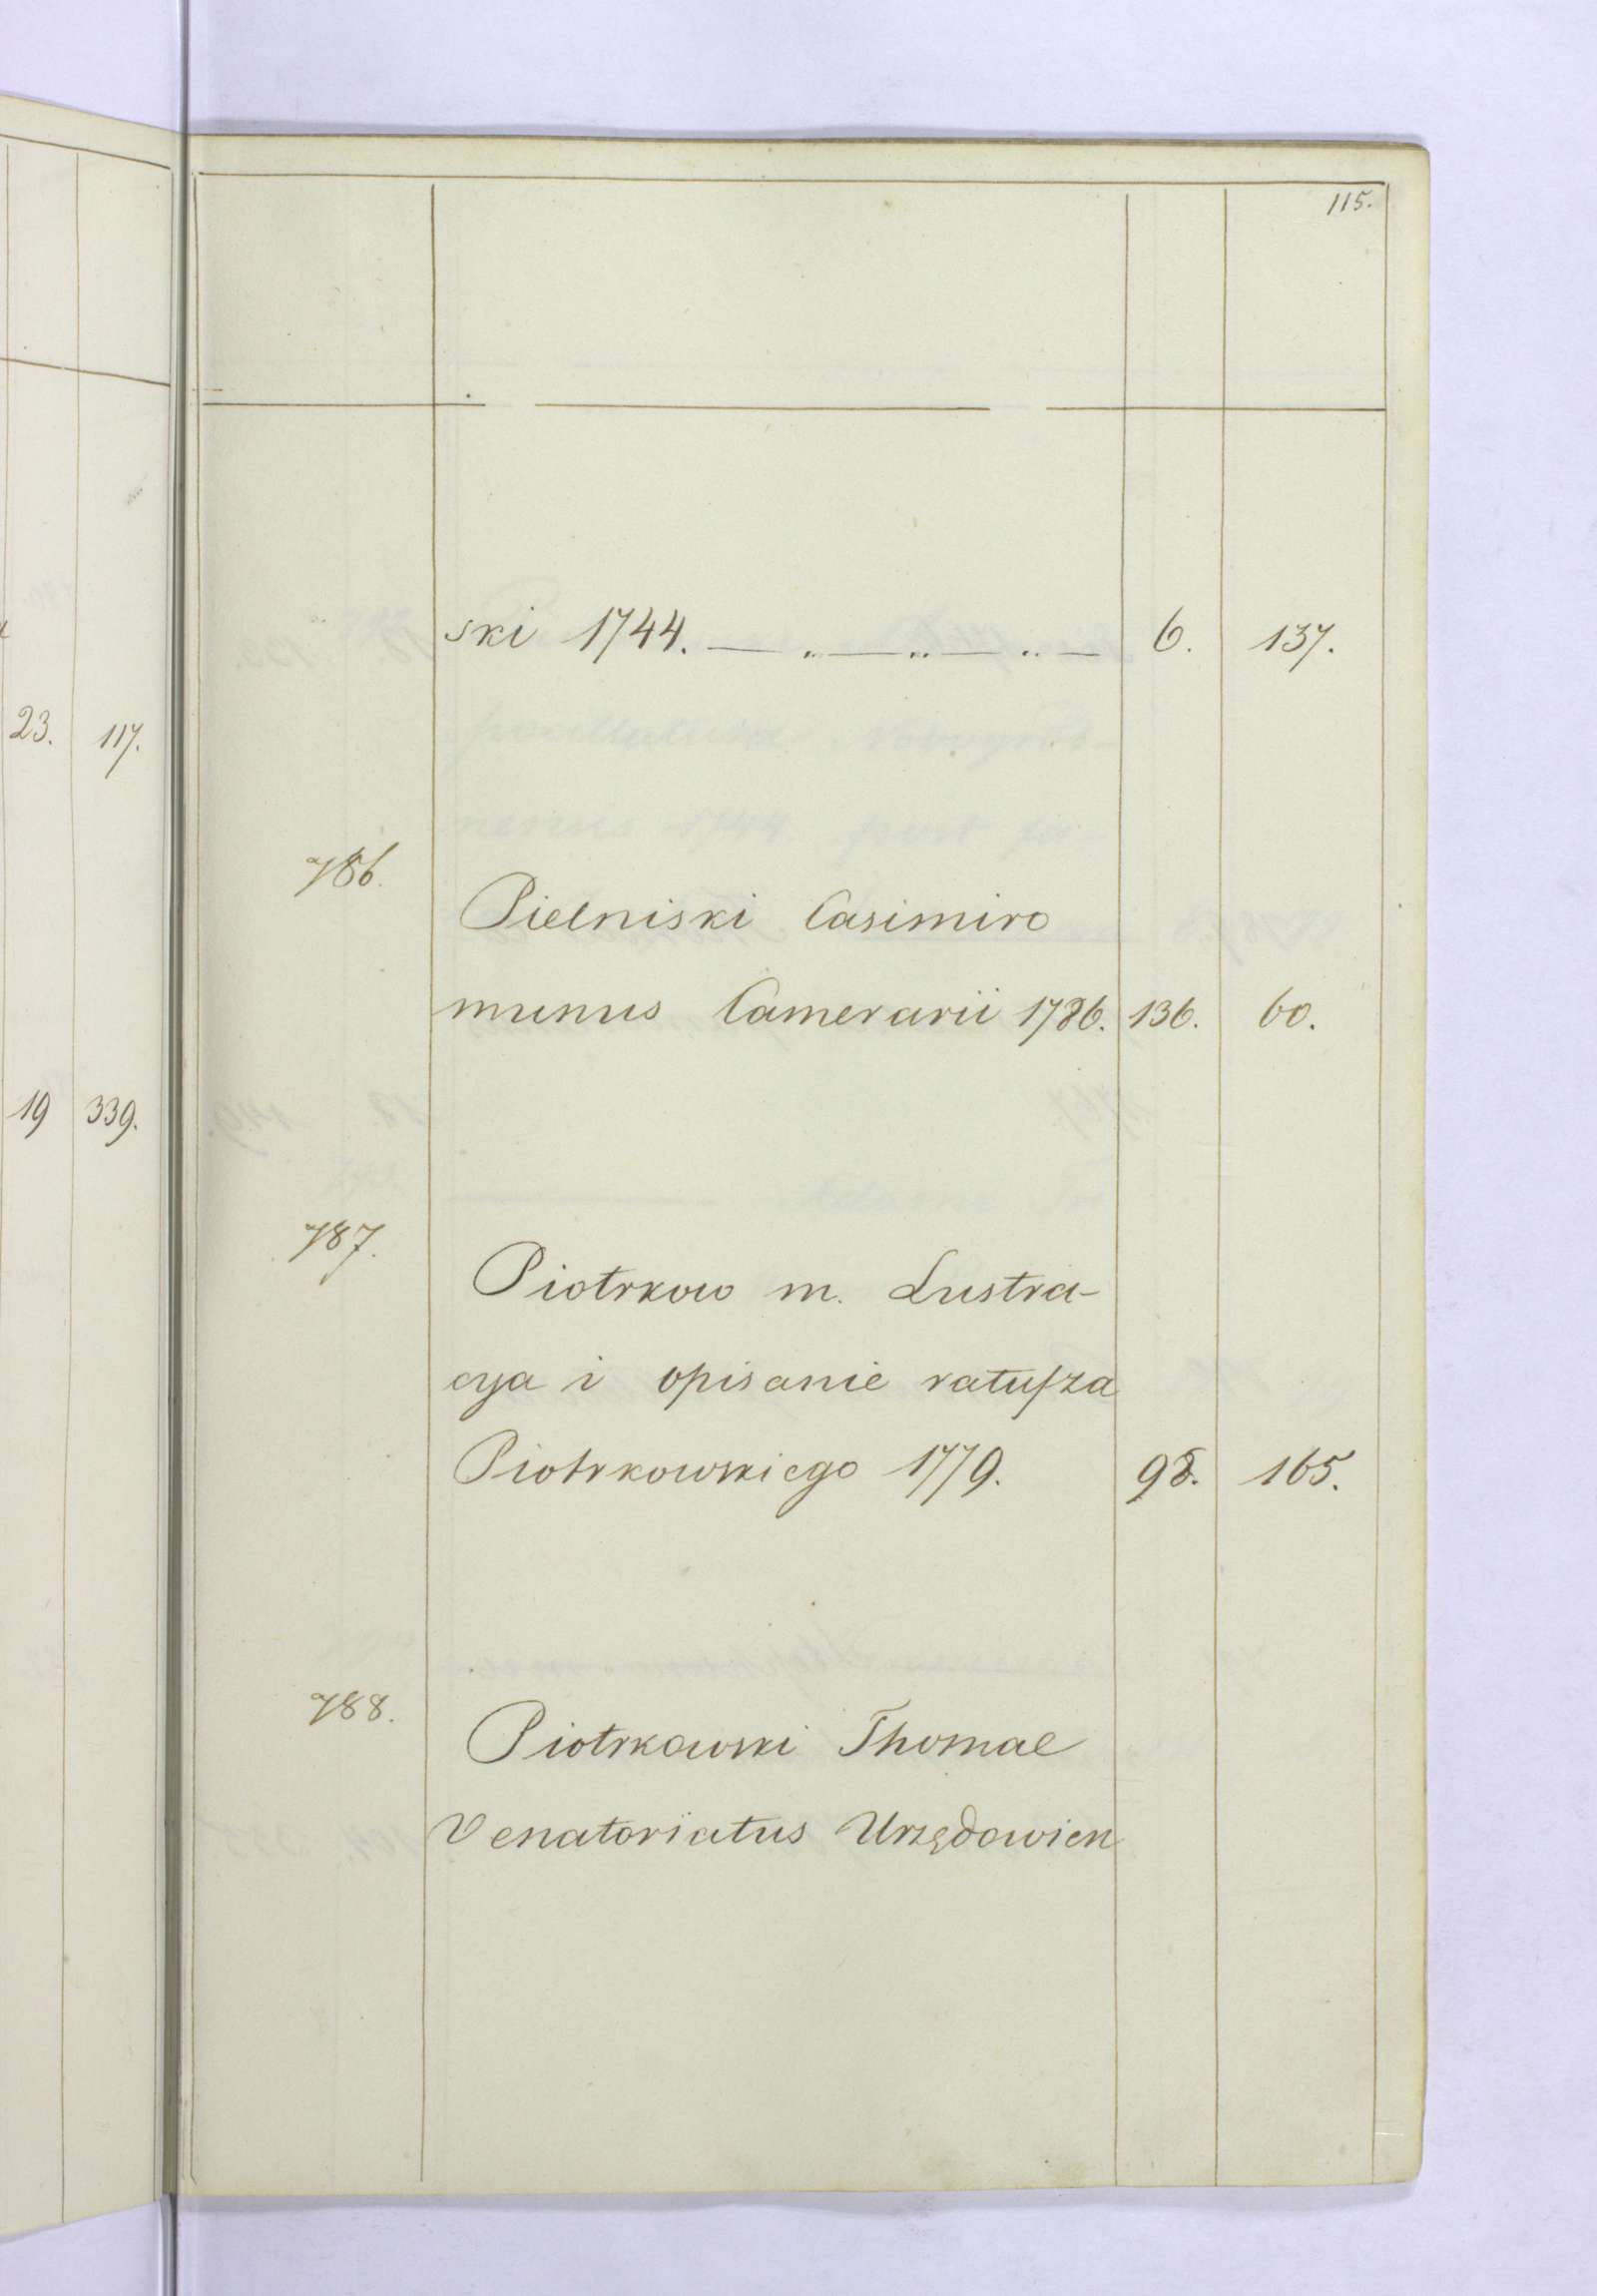 115.
ski 1744. — „ — „ — „ — 6. 137.
23. 117.
786.
Pielniski Casimiro
munus Camerarii 1786. 136. 60.
19 339.
787.
Piotrkow m. Lustra-
cya i opisanie ratuſza
Piotrkowskiego 1779. 98. 165.
788.
Piotrkowski Thomae
Venatoriatus Urzędowien